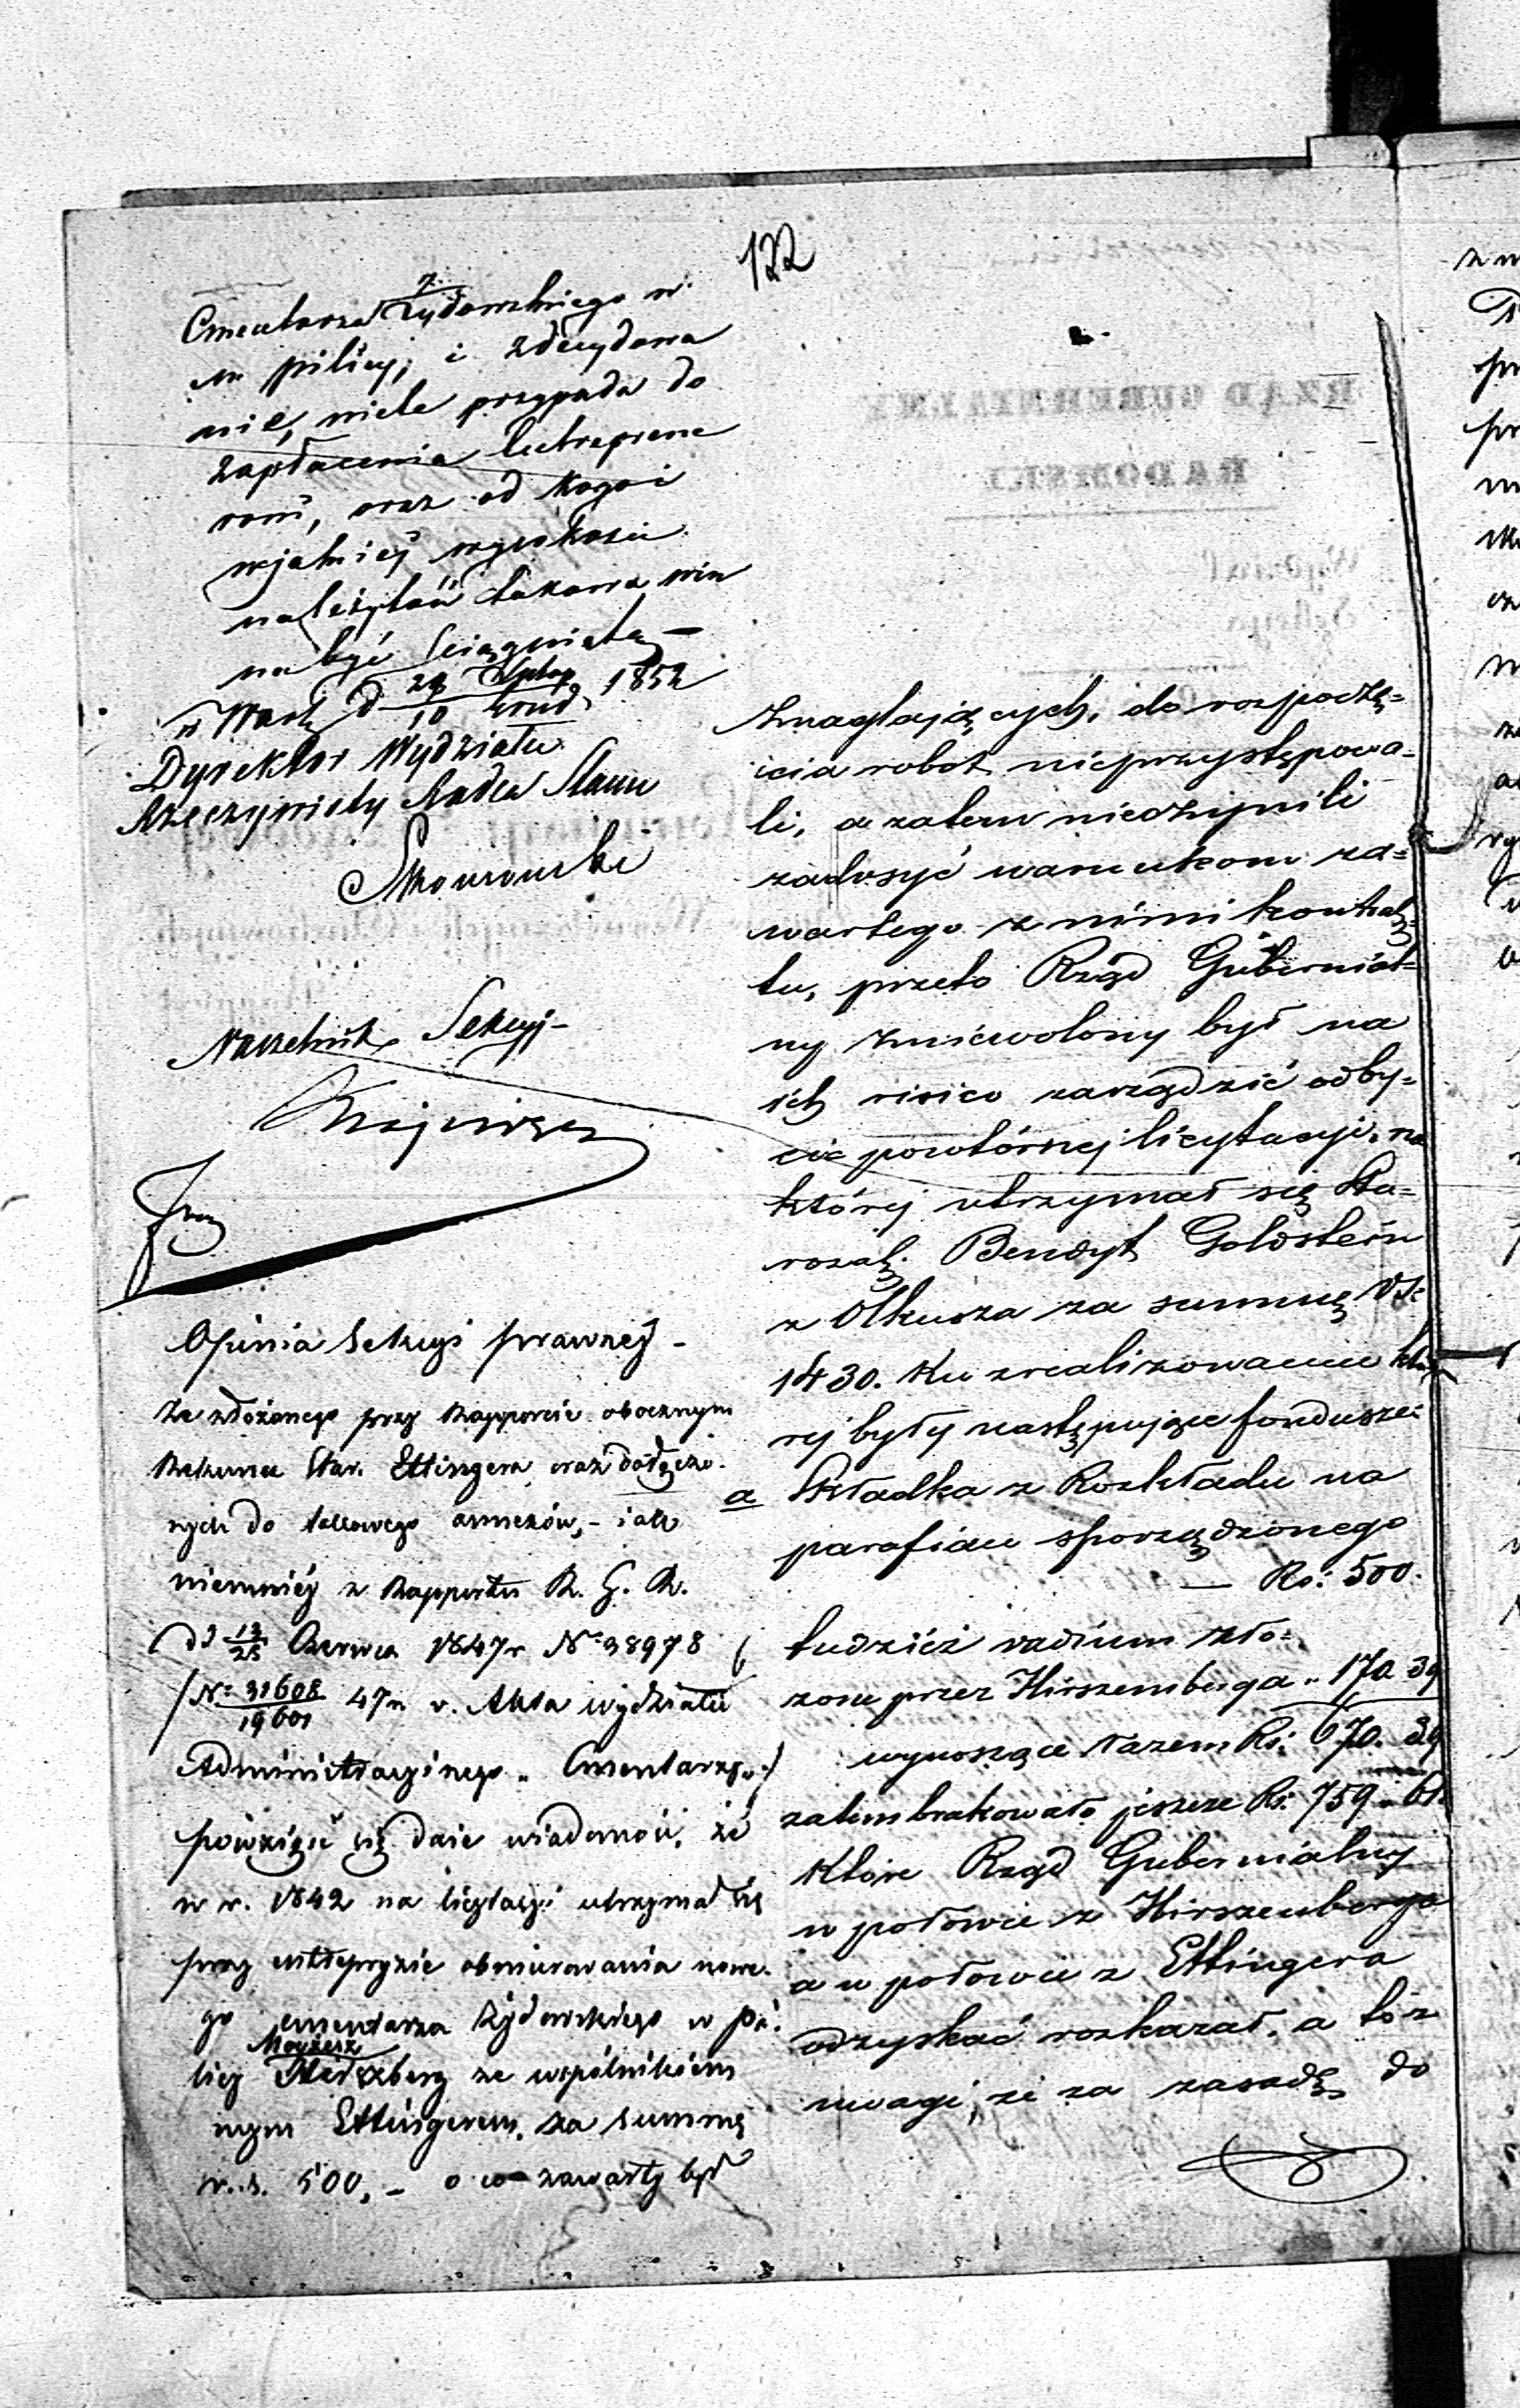 122
Cmentarza Żydowskiego w
m pilicy, i zdecydowa
nie, wiele przypada do
zapłacenia Entreprene
rowi, oraz od kogo i
w jakiéj wysokości
należytość takowa win
na być ściągnięta —
w Warsz d 28 Listop 1852
10 Grud
Dyrektor Wydziału
Rzeczywisty Radca Stanu
Naczelnik Sekcyi
Opinia Sekcyi prawnéj -
Ze złożonego przy Rapporcie obocznym
Rekursu Star. Ettingera oraz dołączo-
nych do takowego annexów, - iako
niemniéj z Rapportu R. G. R.
d 13/25 Czerwca 1847 r N: 38978
/N: 31608/19601 47 r v. Akta wydziału
Administracyinego „ Cmentarze „/
powziąść się daie wiadomość, że
w r. 1842 na licytacyi utrzymał się
przy entrepryzie obmurowania nowe-
go cmentarza żydowskiego w Pi-
Moyżesz
licy Herszberg ze wspólnikiem
swym Ettingerem, za summę
r. s. 500, - o co zawarty był
znaglających, do rozpoczę-
icia robot nieprzystępowa-
li, a zatem nieczynili
zadosyć warunkom za-
wartego z nimi kontrak-
tu, przeto Rząd Gubernial-
ny zniewolony był na
ich risico zarządzić odby-
cie powtórnej licytacyi, na
której utrzymał się Sta-
rozak. Bendyt Goldstein
z Olkusza za summę rs.
1430. Ku zrealizowaniu któ-
rej były następujące fundusze:
a Składka z Rozkładu na
parafian sporządzonego
— Rs: 500.
tudzież vadium zło-
zone przez Hirszenberga „ 170 39
wynoszące razem Rs: 670. 39
zatem brakowało jeszcze Rs: 759 „ 61
które Rząd Gubernialny
w połowie z Hirszenberga
a w połowie z Ettingera
odzyskać rozkazał, a to z
uwagi, że za zasadę do